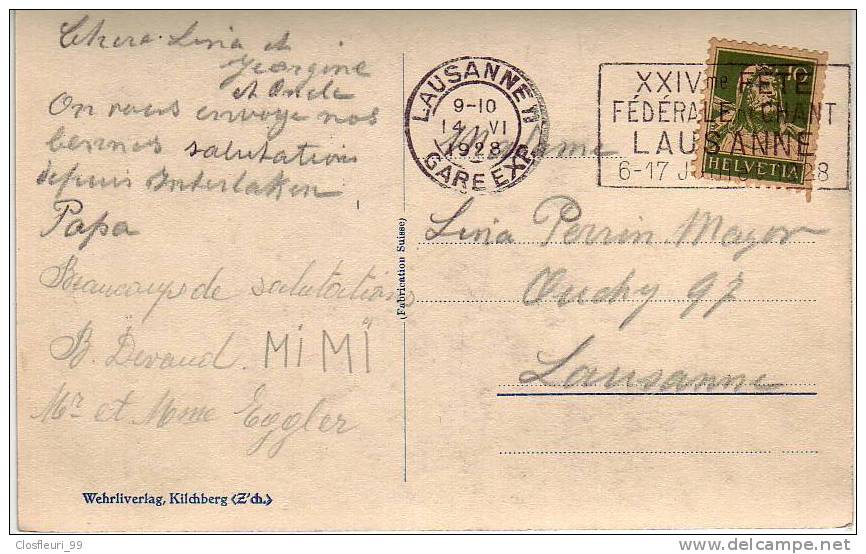 Chère Lina et
Georgine
et Oncle
On vous envoye nos
bonnes salutations
depuis Interlaken
Papa
Beaucoups de salutations
B. Devaud. MiMi
Mr et Mme Eggler
Wehrliverlag, Kilchberg (Z'ch.)
(Fabrication Suisse)
LAUSANNE
9-10
14 VI
1928
GARE EXP.
XXIVme FÊTE
FÉDÉRALE CHANT
LAUSANNE
6-17 28
10
HELVETIA
Madame
Lina Perrin Mayor
Ouchy 97
Lausanne
Closfleuri_99
DELCAMPE.NET